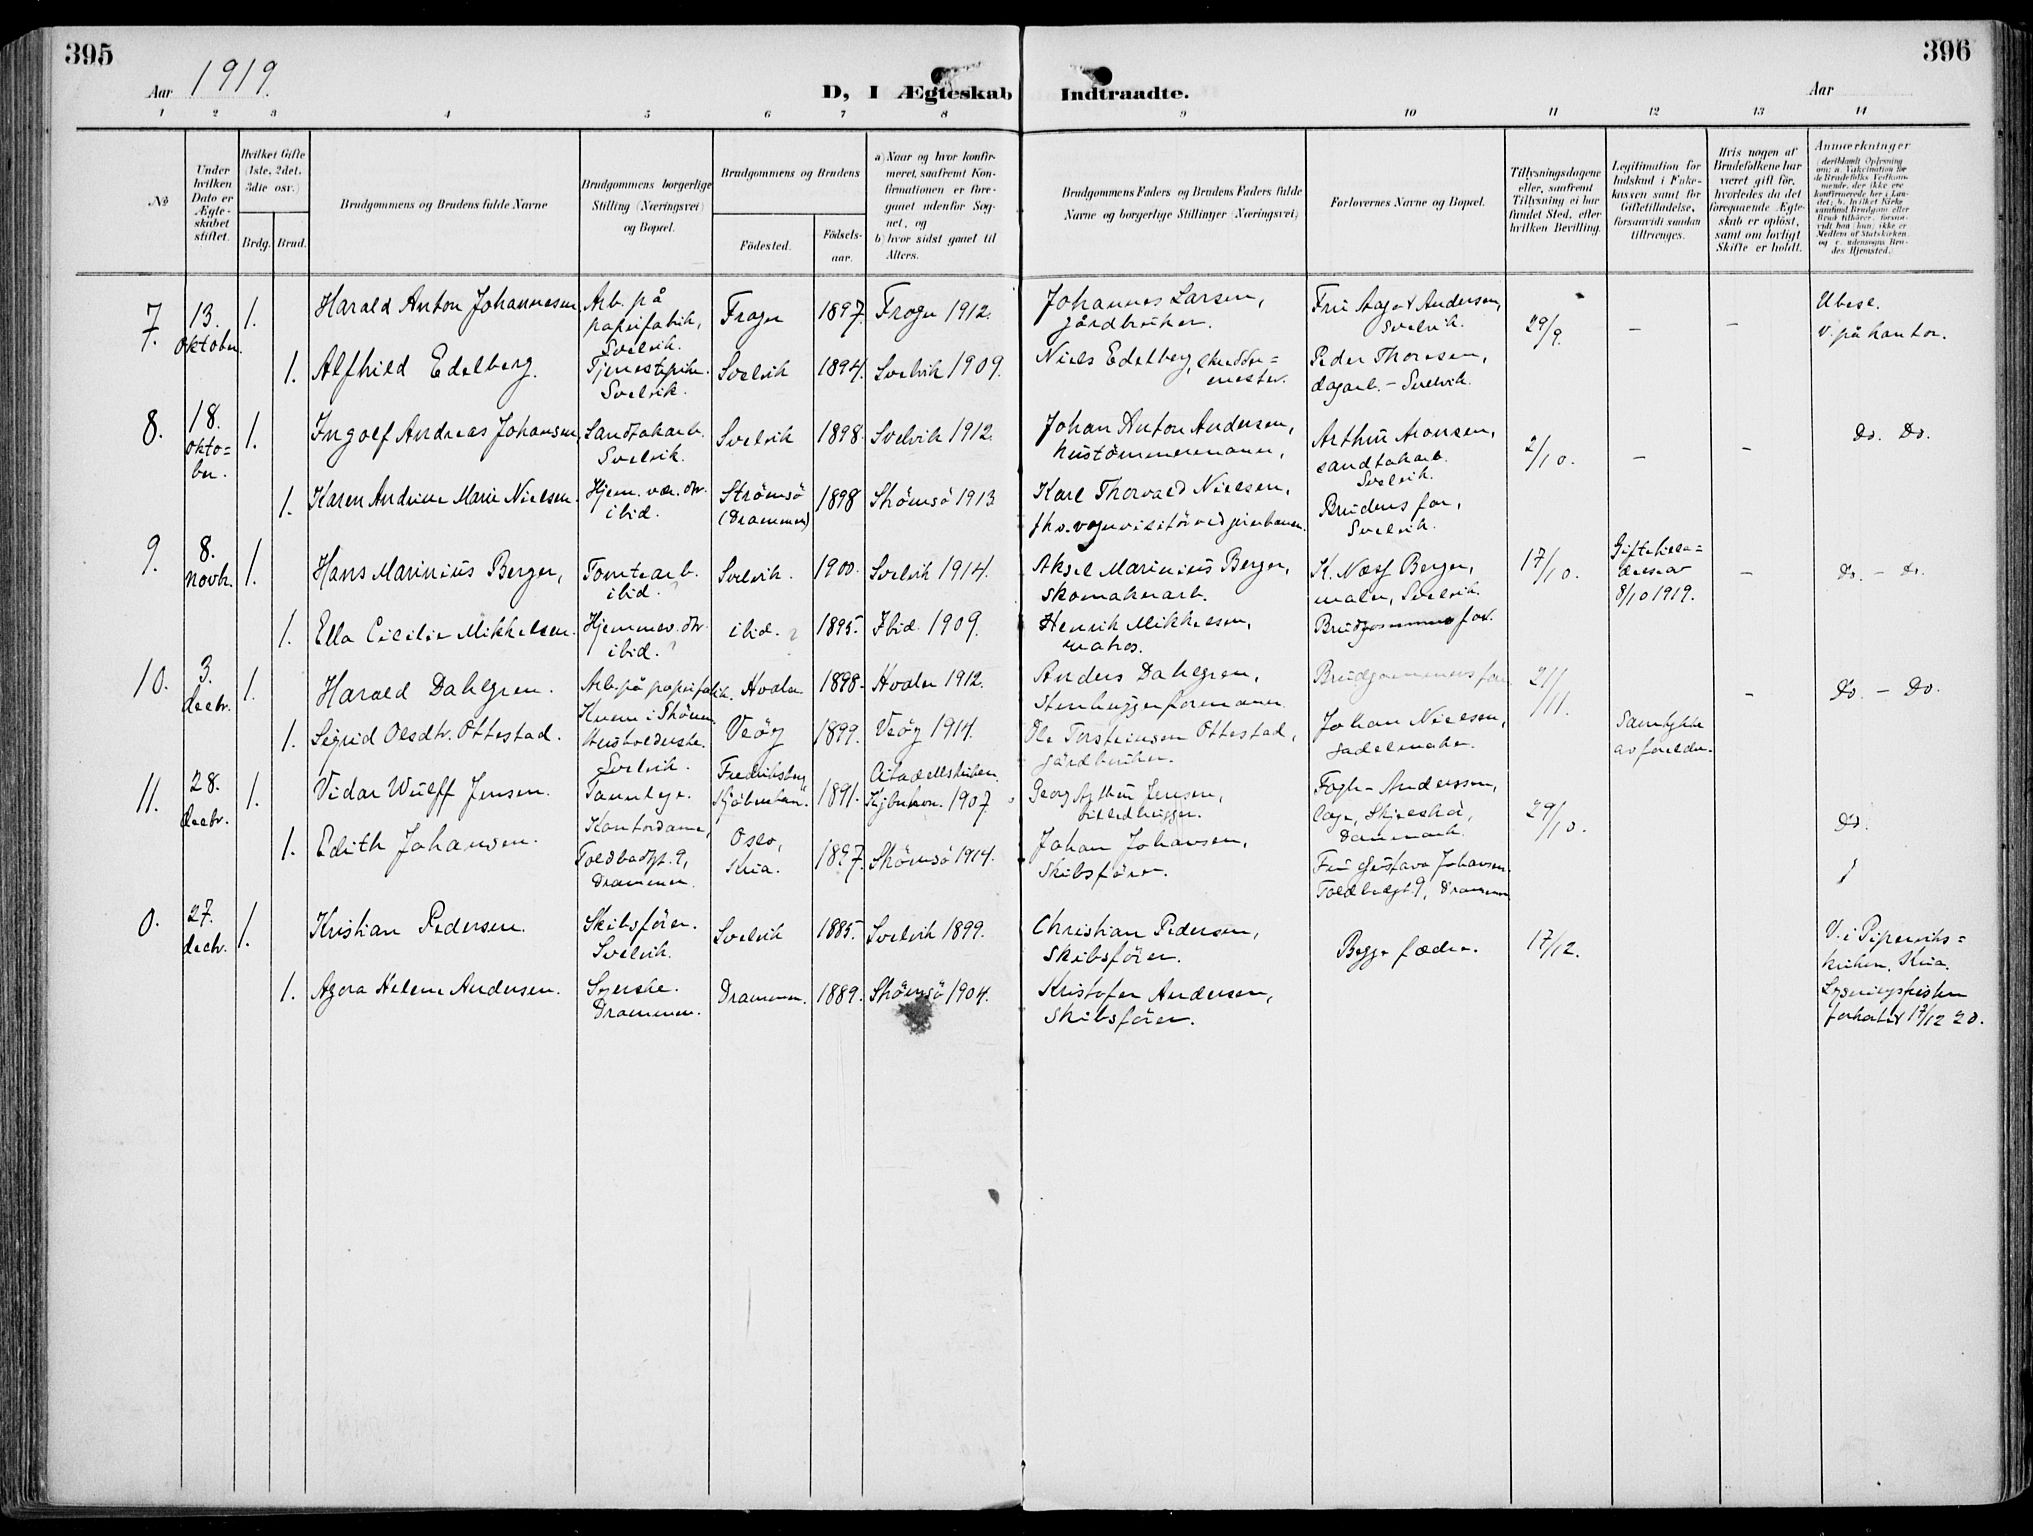 395
396
Aar 1919.
D, I Ægteskab Indtraadte.
Aar
1 2 3 4 5 6 7 8 9 10 11 12 13 14
No
Under hvilken Dato er Ægteskabet stiftet.
Hvilket Gifte (1ste, 2det, 3die osv.)
Brdg. Brud.
Brudgommens og Brudens fulde Navne
Brudgommens borgerlige Stilling (Næringsvei) og Bopæl.
Brudgommens og Brudens
Fødested.
Fødselsaar.
a) Naar og hvor konfirmeret, saafremt Konfirmationen er foregaaet udenfor Sognet, og
b) hvor sidst gaaet til Alters.
Brudgommens Faders og Brudens Faders fulde Navne og borgerlige Stillinger (Næringsvei)
Forlovernes Navne og Bopæl.
Tillysningsdagene eller, saafremt Tillysning ei har fundet Sted, efter hvilken Bevilling.
Legitimation for Indskud i Enkekassen samt for Giftetilladelse, forsaavidt saadan tiltrænges.
Hvis nogen af Brudefolkene har været gift før, hvorledes da det foregaaende Ægteskab er opløst, samt om lovligt Skifte er holdt.
Anmærkninger
7. 13. oktober. 1. Harald Anton Johannesen Arb. på papirfabrik, Svelvik. Frogn 1897. Frogn 1912. Johannes Larsen, gårdbruker. Fru Aagot Andersen, Svelvik. 29/9. – – Ubesl. V. på kontor.
1. Alfhild Edelberg. Tjenestepike. Svelvik. Svelvik 1894. Svelvik 1909. Niels Edelberg, skreddermester. Peder Thoresen, dagarb. – Svelvik.
8. 18. oktober. 1. Ingolf Andreas Johansen, Sandtakarb. Svelvik. Svelvik 1898. Svelvik 1912. Johan Anton Andersen, hustømmermann, Arthur Aronsen, sandtakarb. Svelvik. 2/10. – – Do. Do.
1. Karen Andrine Marie Nielsen. Hjem. vær. dtr. ibid. Strømsø (Drammen) 1898 Strømsø 1913 Karl Thorvald Nielsen, fhv. vognvisitør ved jernbanen. Brudens far, Svelvik.
9. 8. novbr. 1. Hans Marinius Berger, Tomtearb. ibid. Svelvik. 1900. Svelvik 1914. Aksel Marinius Berger, skomakerarb. K. Næss Berger, maler, Svelvik. 17/10. 8/10 1919. – Do. – Do.
1. Ella Cicilie Mikkelsen. Hjemmev. dtr. ibid. ? ibid. ? 1895. Ibid. 1909. Henrik Mikkelsen, matros. Brudgommens far.
10. 3. decbr. 1. Harald Dahlgren. Arb. på papirfabrik. Hvaler 1898. Hvaler 1912. Anders Dahlgren, Stenhuggerformann. Brudgommens far 21/11. – Do. – Do.
1. Sigrid Olsdtr. Ottestad. Husholderske. Svelvik. Veøy 1899. Veøy 1914. Ole Torsteinsen Ottestad, gårdbruker. Johan Nielsen, sadelmaker. Samtykke av forelder.
11. 28. decbr. 1. Vidar Wulff Jensen. Tannlege. Fredriksberg Kjøbenhavn. 1891. Citadellskirken Kjbnhavn. 1907. Georg Arthur Jensen, billedhugger. Fogh-Anderssen, Danmark. 29/10. Do.
1. Edith Johansen. Kontordame, Toldbodgt. 9, Drammen. Oslo, Kria. 1897. Strømsø 1914. Johan Johansen, Skibsfører. Fru Gustava Johansen Toldbodgt 9, Drammen
0. 27. decbr. 1. Kristian Pedersen. Skibsfører. Svelvik. Svelvik 1885. Svelvik 1899. Christian Pedersen, skibsfører. Begge fædre. 17/12. V. i Piperviks-kirken, Kria.
1. Agora Helene Andersen. Syerske. Drammen. Drammen. 1889. Strømsø 1904. Kristofer Andersen, skibsfører. Lysningsfristen forkortet 17/12 20.